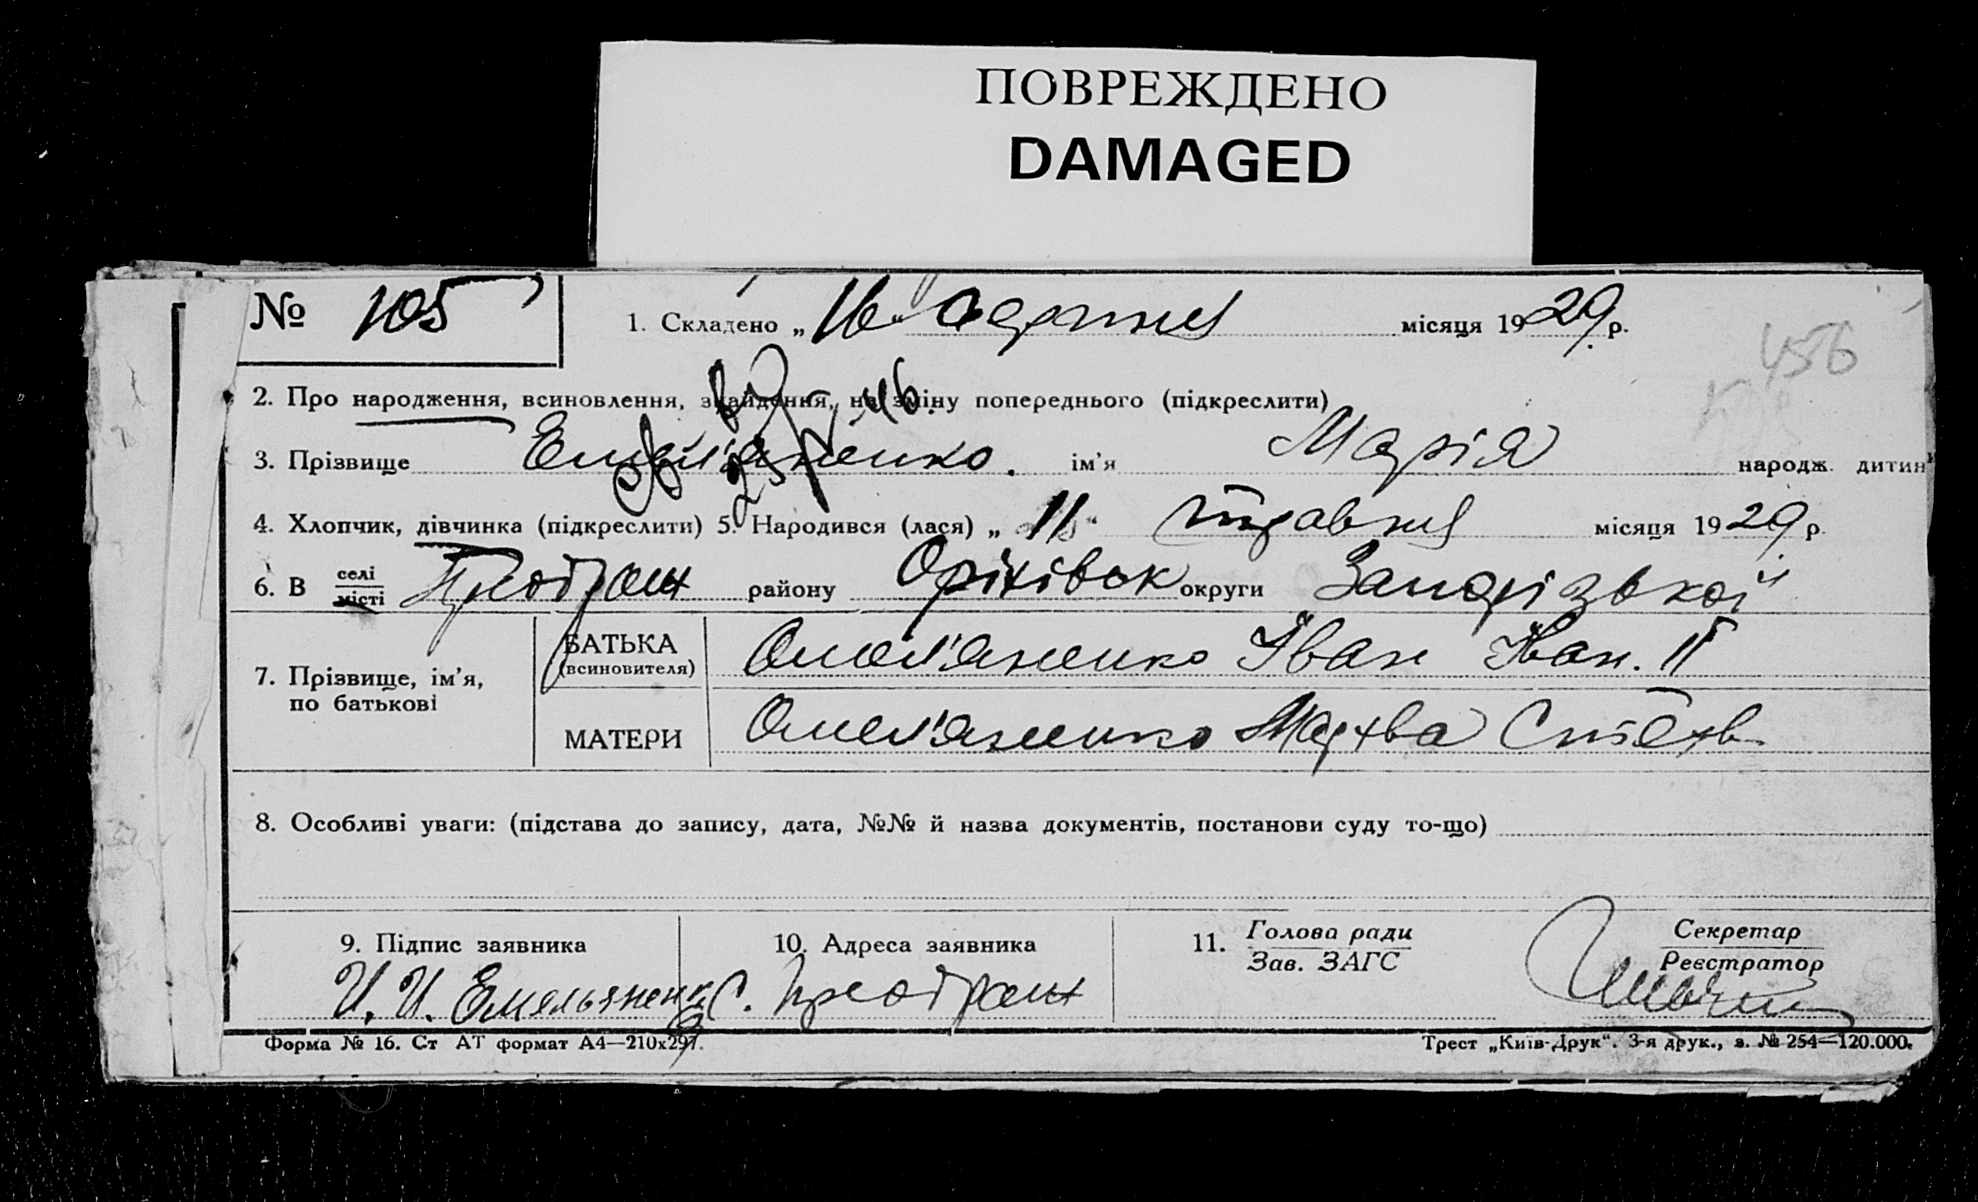 ПОВРЕЖДЕНО
DAMAGED
№ 105
1. Складено „16“ серпня місяця 1929 р.
456
2. Про народження, всиновлення, знайдення, на зміну попереднього (підкреслити)
3. Прізвище Емельяненко. ім'я Марія народж. дитин
4. Хлопчик, дівчинка (підкреслити) 5. Народився (лася) „11“ травня місяця 1929 р.
6. В селі місті Преображ району Оріхівськ округи Запорізької
7. Прізвище, ім'я, по батькові
БАТЬКА (всиновителя) Омел'яненко Іван Іван.
МАТЕРИ Омел'яненко Марфа
8. Особливі уваги: (підстава до запису, дата, №№ й назва документів, постанови суду то-що)
9. Підпис заявника 10. Адреса заявника 11. Голова ради Зав. ЗАГС Секретар Реєстратор
И. И. Емельяненко с. Преображ
Форма № 16. Ст АТ формат А4—210х297. Трест „Київ-Друк“. 3-я друк., з. № 254—120.000.